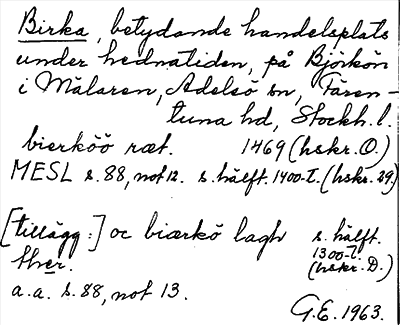 Birka, betydande handelsplats
under hednatiden, på Björkön
i Mälaren, Adelsö sn, Fären-
tuna hd, Stockh. l.
bierköö ræt. 1469 (hskr. O.)
MESL s. 88, not 12. s. hälft. 1400-t. (hskr. 29)
[tillägg:] oc biærkö lagh s. hälft.
1300-t.
ther. (hskr. D.)
a.a. s. 88, not 13.
G.E. 1963.